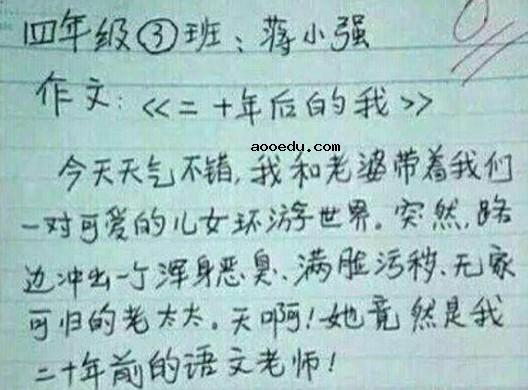 四年级③班:蒋小强
0
作文:《二十年后的我》
aooedu.com
今天天气不错,我和老婆带着我们
一对可爱的儿女环游世界。突然,路
边冲出一个浑身恶臭、满脸污秽、无家
可归的老太太。天啊!她竟然是我
二十年前的语文老师!